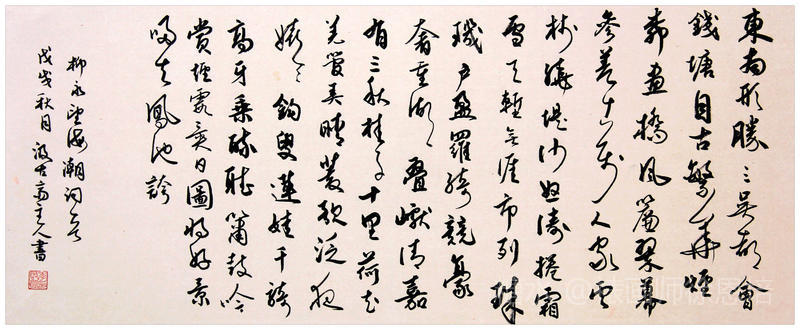 東南形勝三吳都會
錢塘自古繁華煙
柳畫橋風簾翠幕
參差十萬人家雲
樹繞堤沙怒濤捲霜
雪天塹無涯市列珠
璣戶盈羅綺競豪
奢重湖疊巘清嘉
有三秋桂子十里荷花
羌管弄晴菱歌泛夜
嬉嬉釣叟蓮娃千騎
高牙乘醉聽簫鼓吟
賞煙霞異日圖將好景
歸去鳳池誇
柳永望海潮詞一首
戊戌秋月汲古齋主人書